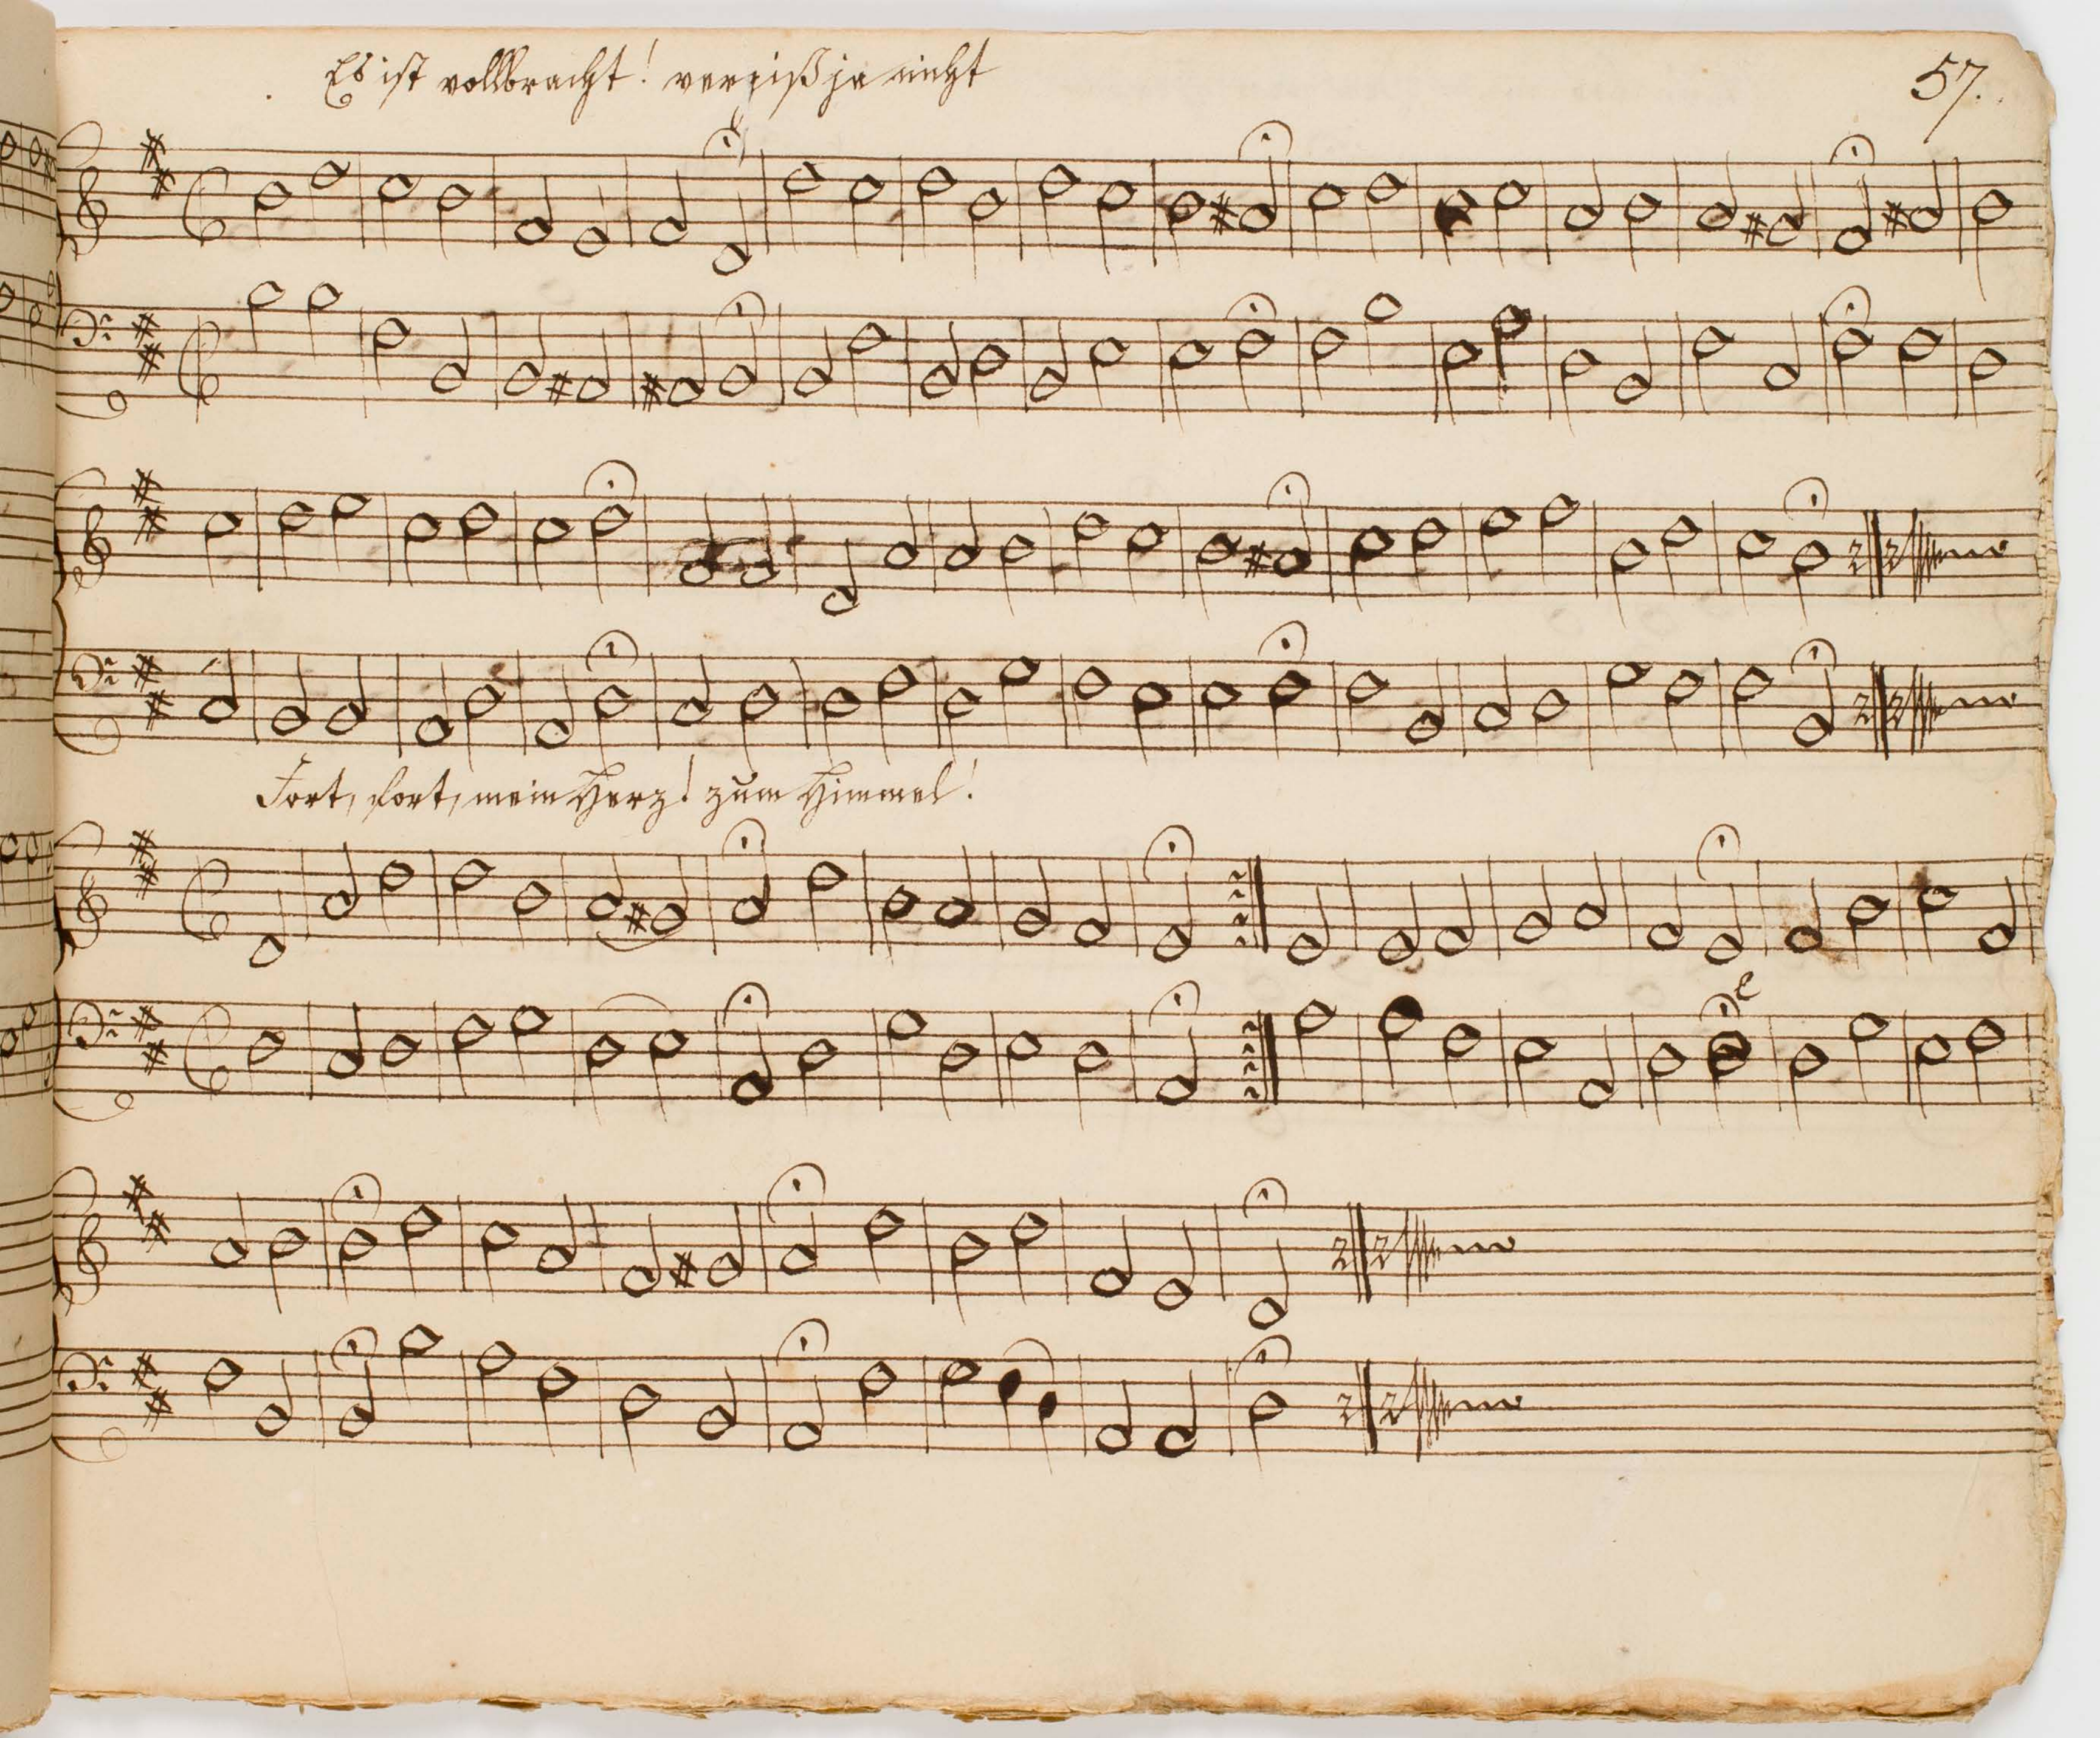 Es ist vollbracht! vergiß ja nicht
57.
Fort, fort, mein Herz! zum Himmel!
e